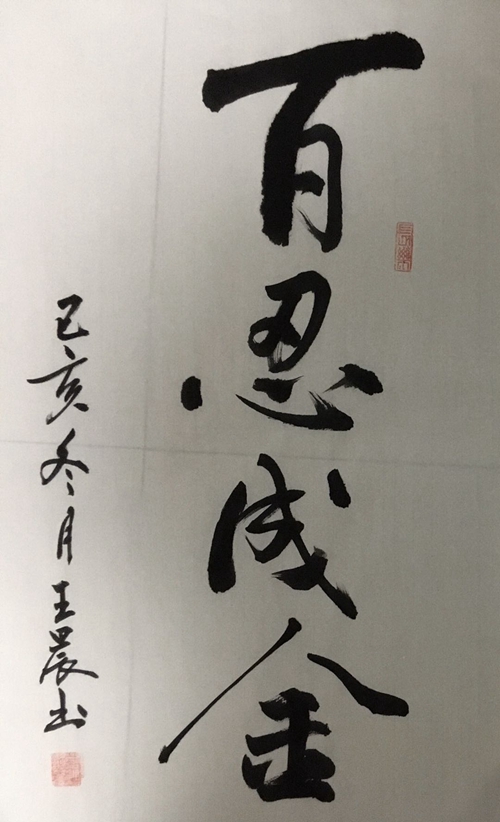 百忍成金
己亥冬月王晨书